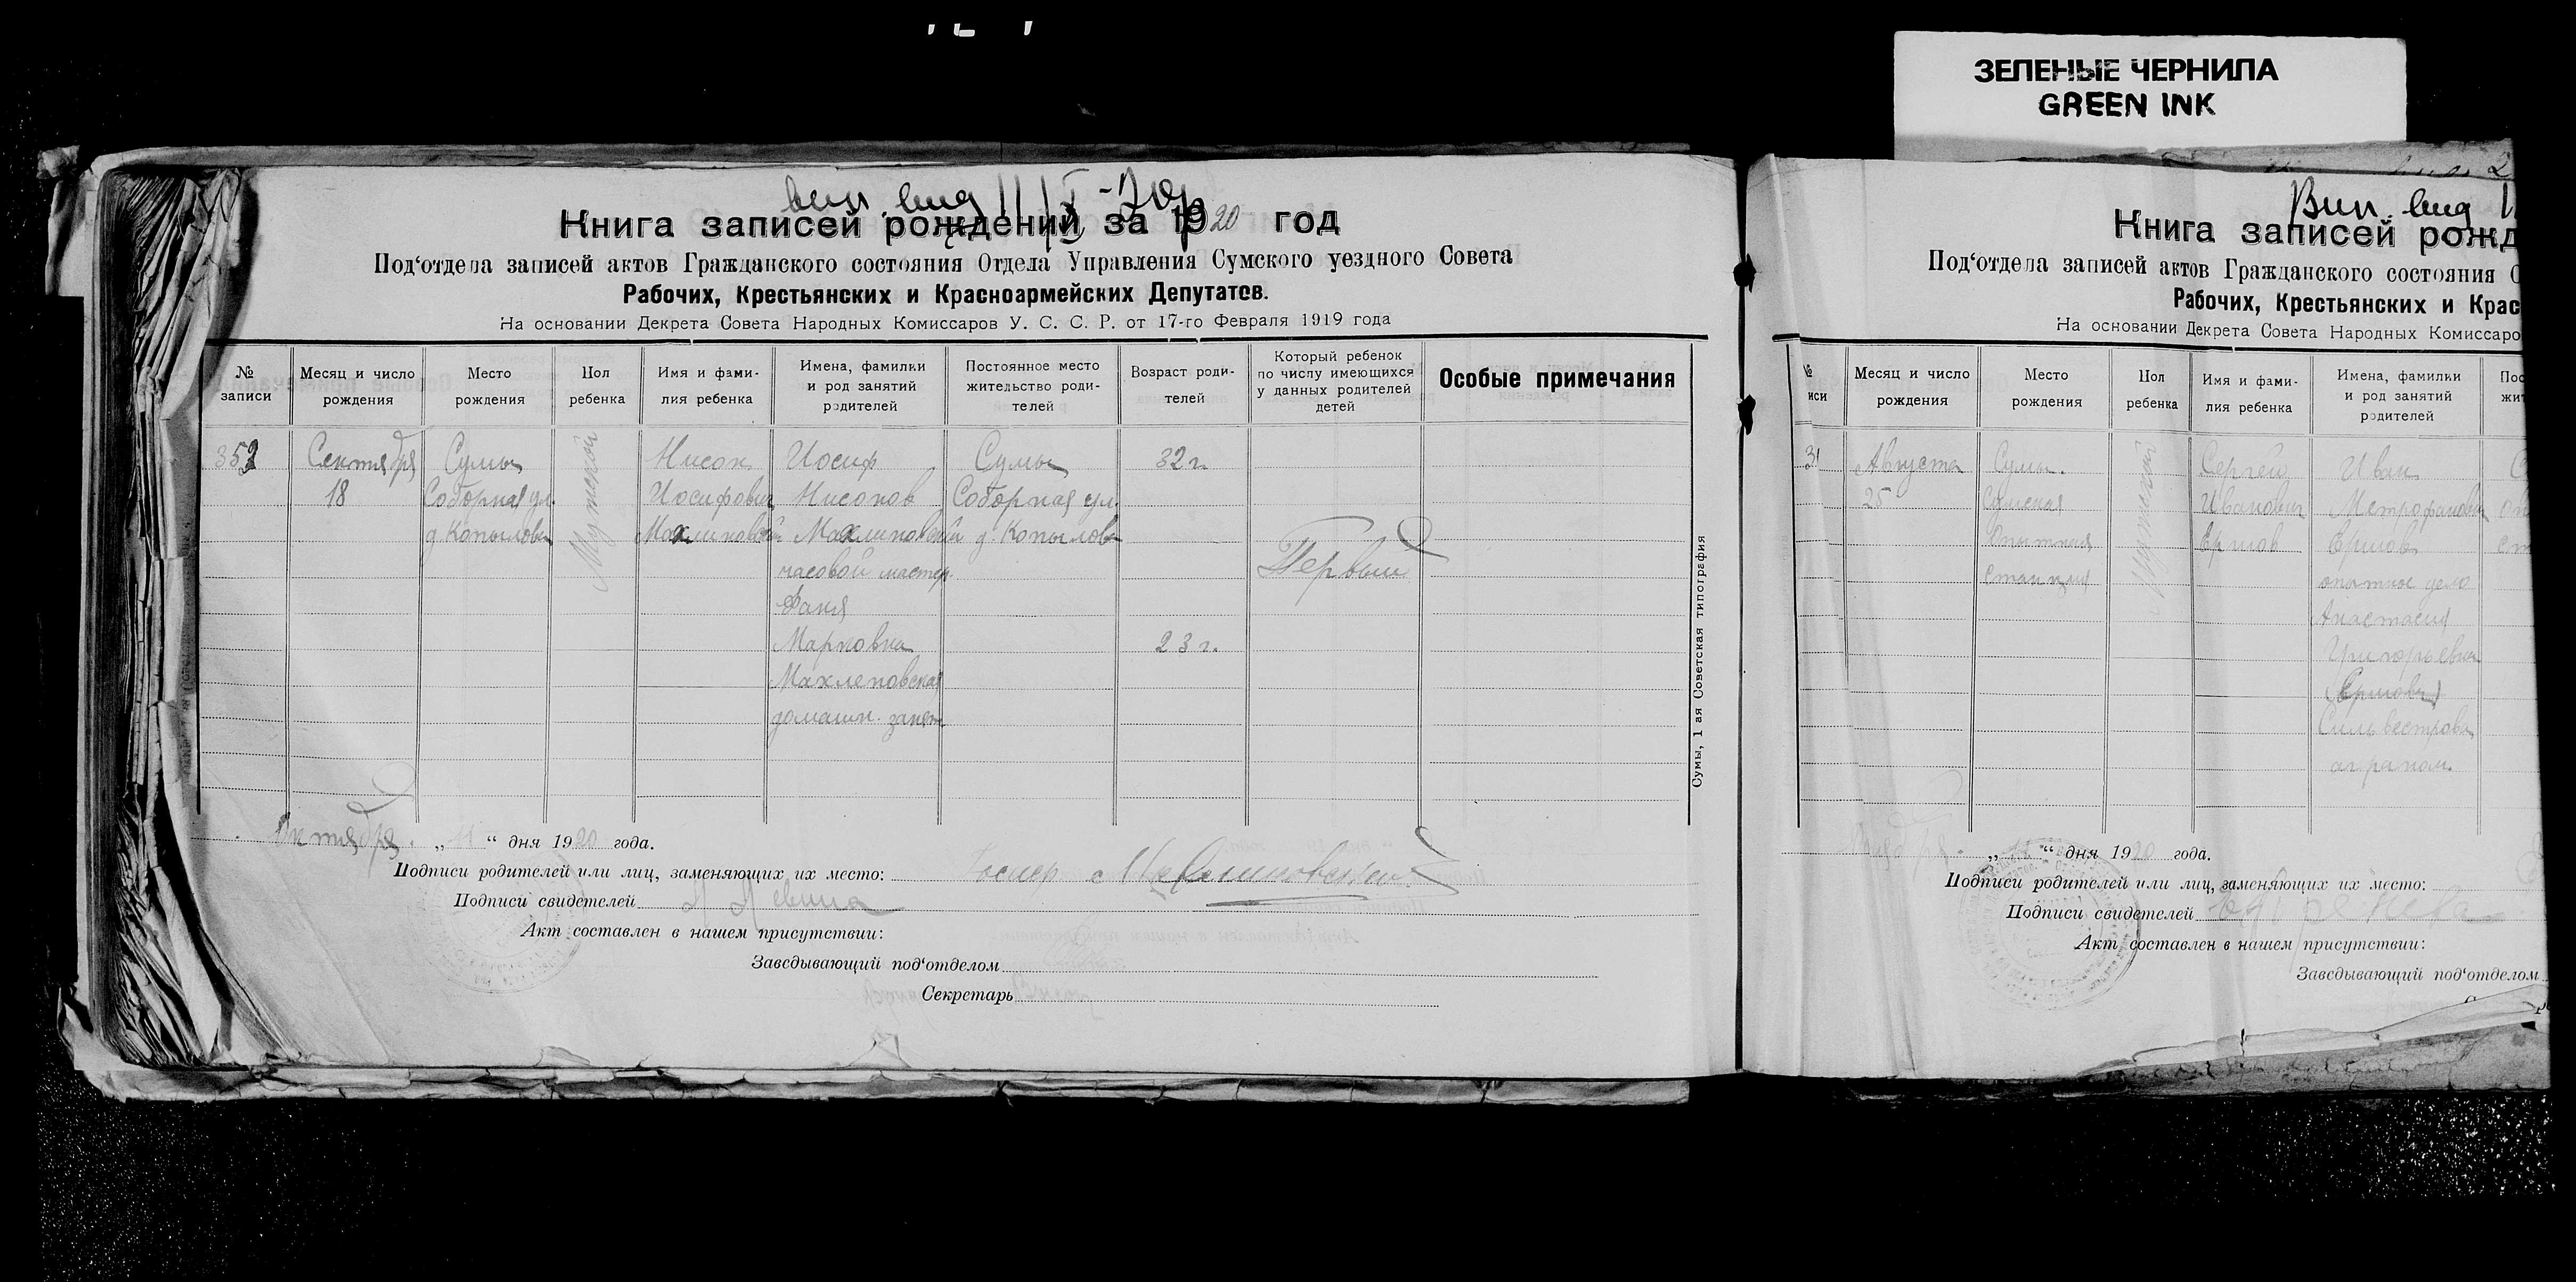 ЗЕЛЕНЫЕ ЧЕРНИЛА
GREEN INK
Книга записей рождений за 1920 год
Под‘отдела записей актов Гражданского состояния Отдела Управления Сумского уездного Совета
Рабочих, Крестьянских и Красноармейских Депутатов.
На основании Декрета Совета Народных Комиссаров У. С. С. Р. от 17-го Февраля 1919 года
№ записи
Месяц и число рождения
Место рождения
Пол ребенка
Имя и фами-
лия ребенка
Имена, фамилии
и род занятий
родителей
Постоянное место
жительство роди-
телей
Возраст роди-
телей
Который ребенок
по числу имеющихся
у данных родителей
детей
Особые примечания
Сентября
18
Сумы
Соборная ул.
д Копылова
Мужской
Нисон
Иосифович
Махлиновский
Иосиф
Нисонов
Махлиновский
часовой мастер.
Фаня
Марковна
Махлеповская
домашн. занят
Сумы
Соборная ул.
д. Копылова
32 г.
23 г.
Первый
Сумы, 1 ая Советская типография
Октября. „11“ дня 1920 года.
Подписи родителей или лиц, заменяющих их место:
Подписи свидетелей
Акт составлен в нашем присутствии:
Заведывающий под‘отделом
Секретарь
Книга записей рожд
Под‘отдела записей актов Гражданского состояния О
Рабочих, Крестьянских и Крас
На основании Декрета Совета Народных Комиссаро
№
иси
Месяц и число
рождения
Место
рождения
Пол
ребенка
Имя и фами-
лия ребенка
Имена, фамилии
и род занятий
родителей
Пос
жит
31
Августа
25
Сумы.
Сумская
Опытная
станция
Мужской
Сергей
Иванович
Ершов
Иван
Метрофанович
Ершов
опытное дело
Анастасия
Григорьевна
(Ершова)
Сильвестрова
агроном.
“ дня 1920 года.
Подписи родителей или лиц, заменяющих их место:
Подписи свидетелей
Акт составлен в нашем присутствии:
Заведывающий под‘отделом